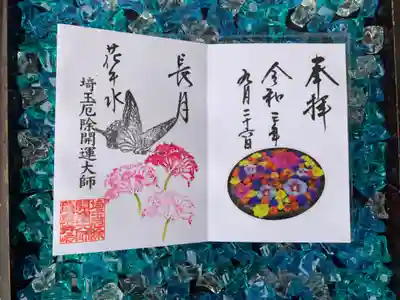 奉拝
令和二年
九月二十六日
長月
花手水
埼玉厄除開運大師